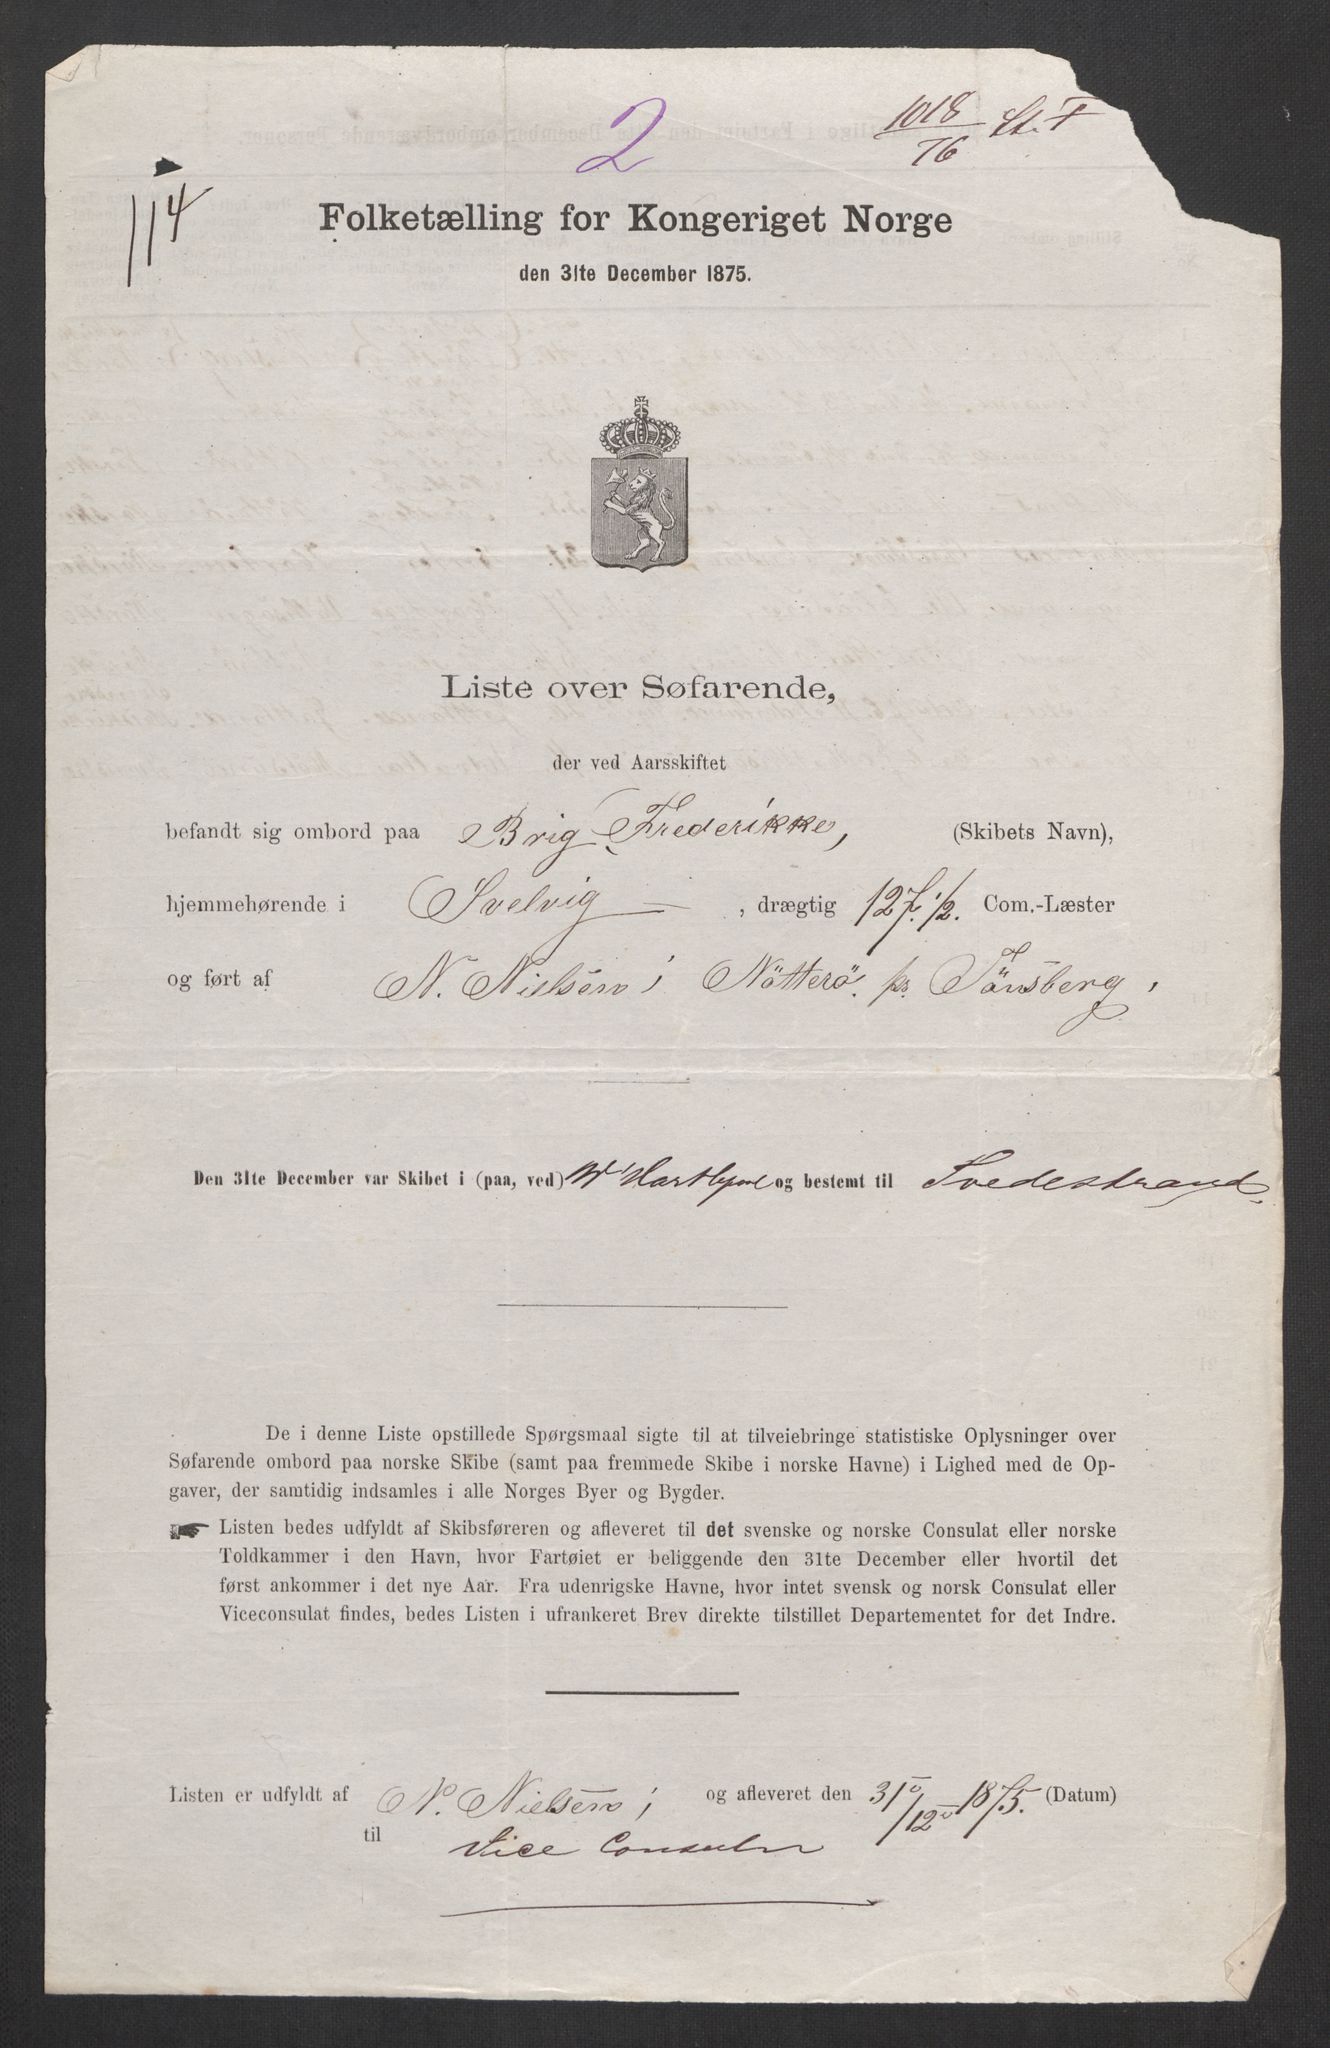 2
1018/76 St. T
114
Folketælling for Kongeriget Norge
den 31te December 1875.
Liste over Søfarende,
der ved Aarsskiftet
befandt sig ombord paa Brig Frederikke, (Skibets Navn),
hjemmehørende i Svelvig , drægtig 127. 1/2. Com.-Læster
og ført af N. Nielsen i Nötterö pr. Tönsberg,
Den 31te December var Skibet i (paa, ved) Wt Hartlepool og bestemt til Tvedestrand,
De i denne Liste opstillede Spørgsmaal sigte til at tilveiebringe statistiske Oplysninger over
Søfarende ombord paa norske Skibe (samt paa fremmede Skibe i norske Havne) i Lighed med de Op-
gaver, der samtidig indsamles i alle Norges Byer og Bygder.
☛ Listen bedes udfyldt af Skibsføreren og afleveret til det svenske og norske Consulat eller norske
Toldkammer i den Havn, hvor Fartøiet er beliggende den 31te December eller hvortil det
først ankommer i det nye Aar. Fra udenrigske Havne, hvor intet svensk og norsk Consulat eller
Viceconsulat findes, bedes Listen i ufrankeret Brev direkte tilstillet Departementet for det Indre.
Listen er udfyldt af N. Nielsen i og afleveret den 31/12 1875. (Datum)
til Vice Consulen